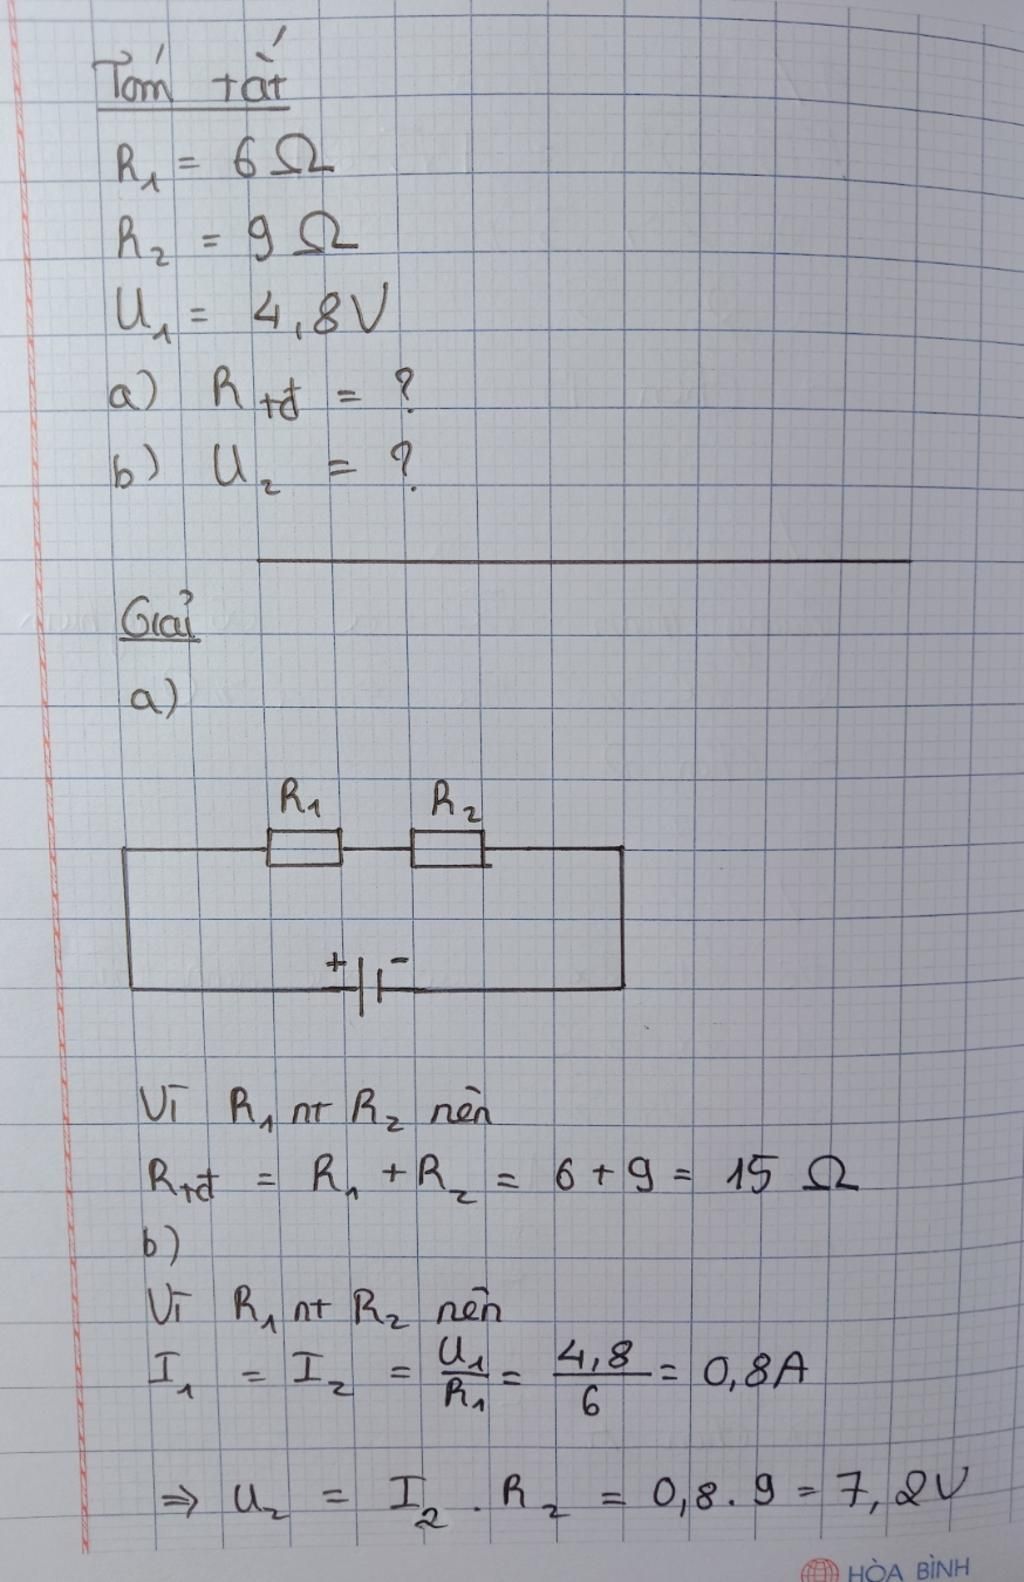 Tóm tắt
R₁ = 6 Ω
R₂ = 9 Ω
U₁ = 4,8V
a) R tđ = ?
b) U₂ = ?
Giải
a)
R₁ R₂
+ -
Vì R₁ nt R₂ nên
Rtđ = R₁ + R₂ = 6 + 9 = 15 Ω
b)
Vì R₁ nt R₂ nên
I₁ = I₂ = U₁/R₁ = 4,8/6 = 0,8A
⇒ U₂ = I₂ . R₂ = 0,8 . 9 = 7,2V
HÒA BÌNH